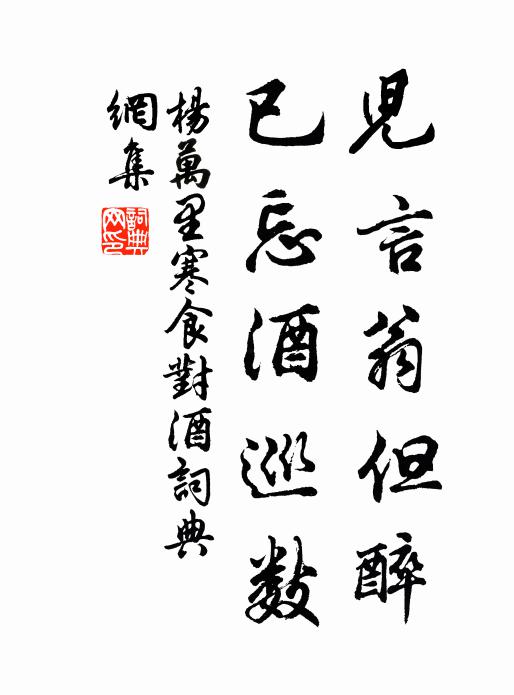 兒言翁但醉
已忘酒巡數
楊萬里寒食對酒詞典
網集
詞典网印